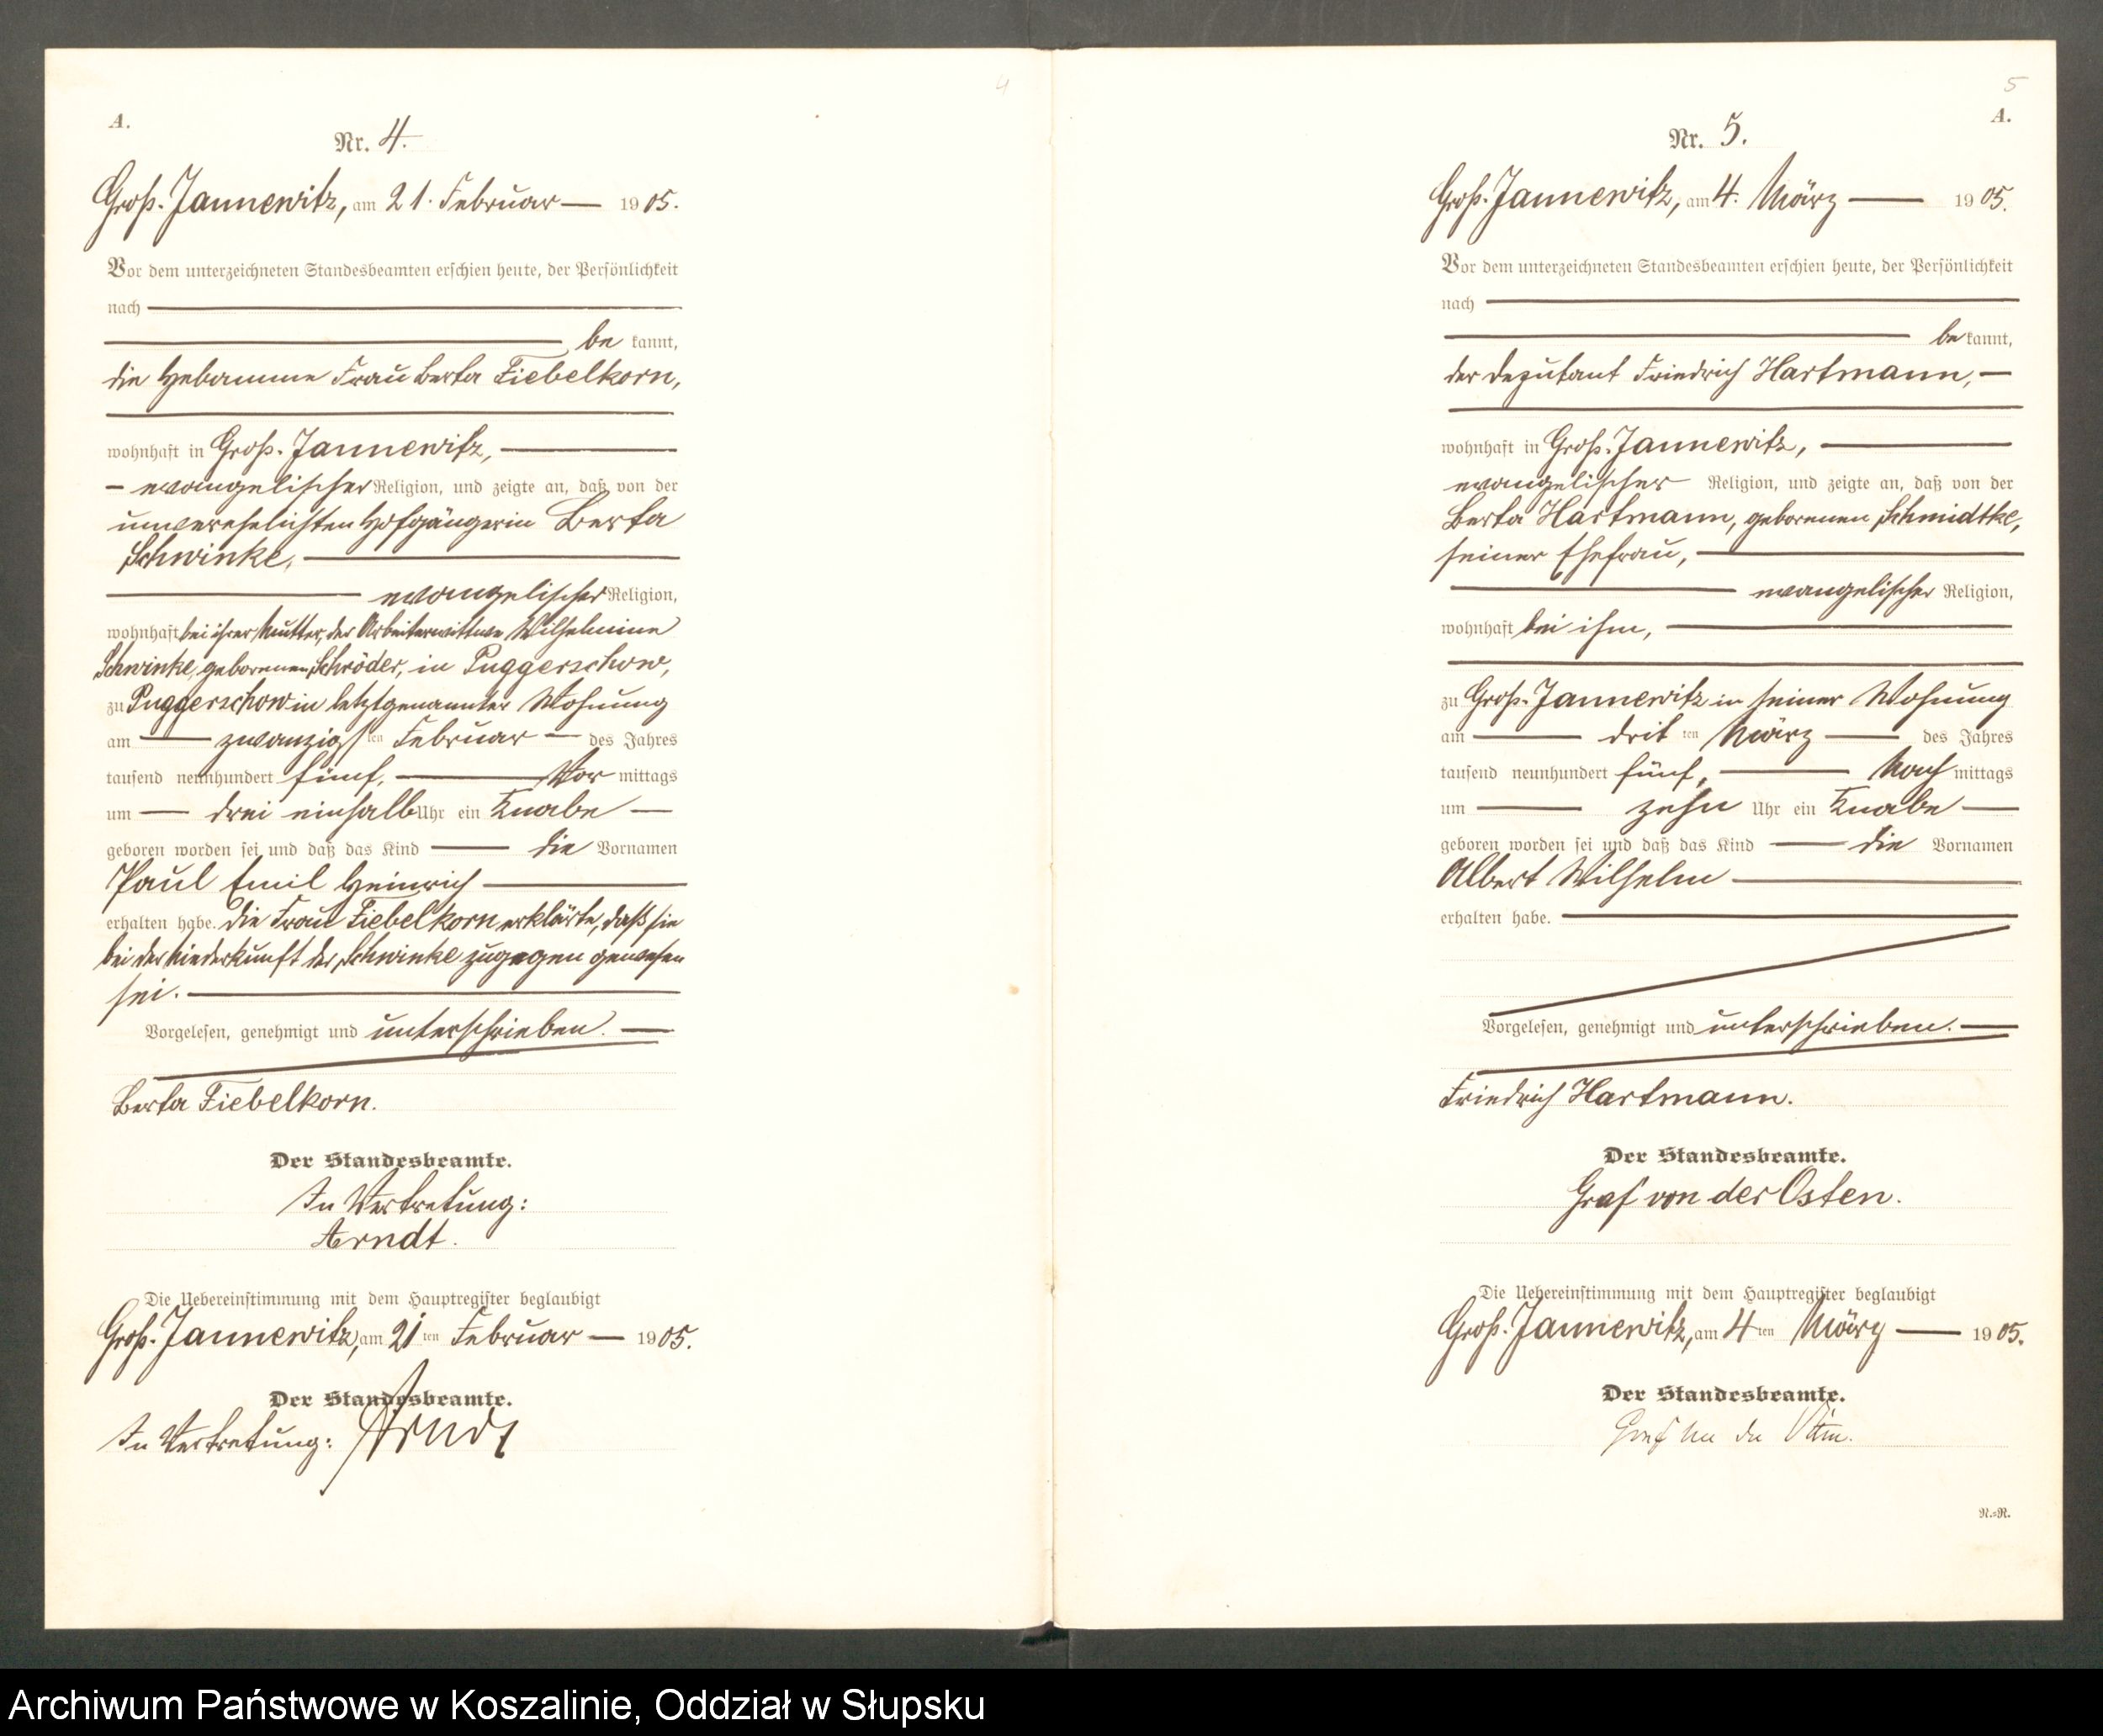 4
A.
Nr. 4.
Groß-Jannewitz, am 21. Februar 1905.
Vor dem unterzeichneten Standesbeamten erschien heute, der Persönlichkeit
nach
be kannt,
die Hebamme Frau Berta Fiebelkorn,
wohnhaft in Groß-Jannewitz,
evangelischer Religion, und zeigte an, daß von der
unverehelichten Hofgängerin Berta
Schwinke,
evangelischer Religion,
wohnhaft bei ihrer Mutter, der Arbeiterwittwe Wilhelmine
Schwinke, geborenen Schröder, in Puggerschow,
zu Puggerschow in letztgenannter Wohnung
am zwanzigsten Februar des Jahres
tausend neunhundert fünf, Vor mittags
um drei einhalb Uhr ein Knabe
geboren worden sei und daß das Kind die Vornamen
Paul Emil Heinrich
erhalten habe. Die Frau Fiebelkorn erklärte, daß sie
bei der Niederkunft der Schwinke zugegen gewesen
sei.
Vorgelesen, genehmigt und unterschrieben.
Berta Fiebelkorn.
Der Standesbeamte.
In Vertretung:
Arndt.
Die Uebereinstimmung mit dem Hauptregister beglaubigt
Groß-Jannewitz, am 21ten Februar 1905.
Der Standesbeamte.
In Vertretung: Arndt
5
A.
Nr. 5.
Groß-Jannewitz, am 4. März 1905.
Vor dem unterzeichneten Standesbeamten erschien heute, der Persönlichkeit
nach
be kannt,
der Deputant Friedrich Hartmann,
wohnhaft in Groß-Jannewitz,
evangelischer Religion, und zeigte an, daß von der
Berta Hartmann, geborenen Schmidtke,
seiner Ehefrau,
evangelischer Religion,
wohnhaft bei ihm,
zu Groß-Jannewitz in seiner Wohnung
am dritten März des Jahres
tausend neunhundert fünf, Nach mittags
um zehn Uhr ein Knabe
geboren worden sei und daß das Kind die Vornamen
Albert Wilhelm
erhalten habe.
Vorgelesen, genehmigt und unterschrieben.
Friedrich Hartmann.
Der Standesbeamte.
Graf von der Osten.
Die Uebereinstimmung mit dem Hauptregister beglaubigt
Groß-Jannewitz, am 4ten März 1905.
Der Standesbeamte.
Graf von der Osten.
R.=R.
Archiwum Państwowe w Koszalinie, Oddział w Słupsku